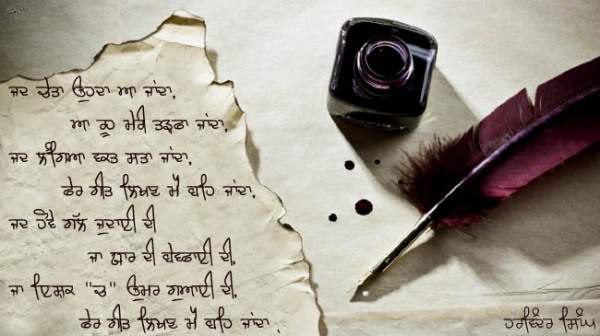 ਜਦ ਚੇਤਾ ਉਹਦਾ ਆ ਜਾਂਦਾ,
ਆ ਰੂਹ ਮੇਰੀ ਤੜਫਾ ਜਾਂਦਾ,
ਜਦ ਲੰਘਿਆ ਵਕਤ ਸਤਾ ਜਾਂਦਾ,
ਫੇਰ ਗੀਤ ਲਿਖਣ ਮੈਂ ਬਹਿ ਜਾਂਦਾ,
ਜਦ ਹੋਵੇ ਗੱਲ ਜੁਦਾਈ ਦੀ
ਜਾਂ ਯਾਰ ਦੀ ਬੇਵਫਾਈ ਦੀ,
ਜਾਂ ਇਸ਼ਕ "ਚ" ਉਮਰ ਗੁਆਈ ਦੀ,
ਫੇਰ ਗੀਤ ਲਿਖਣ ਮੈਂ ਬਹਿ ਜਾਂਦਾ,
ਹਰਵਿੰਦਰ ਸਿੰਘ